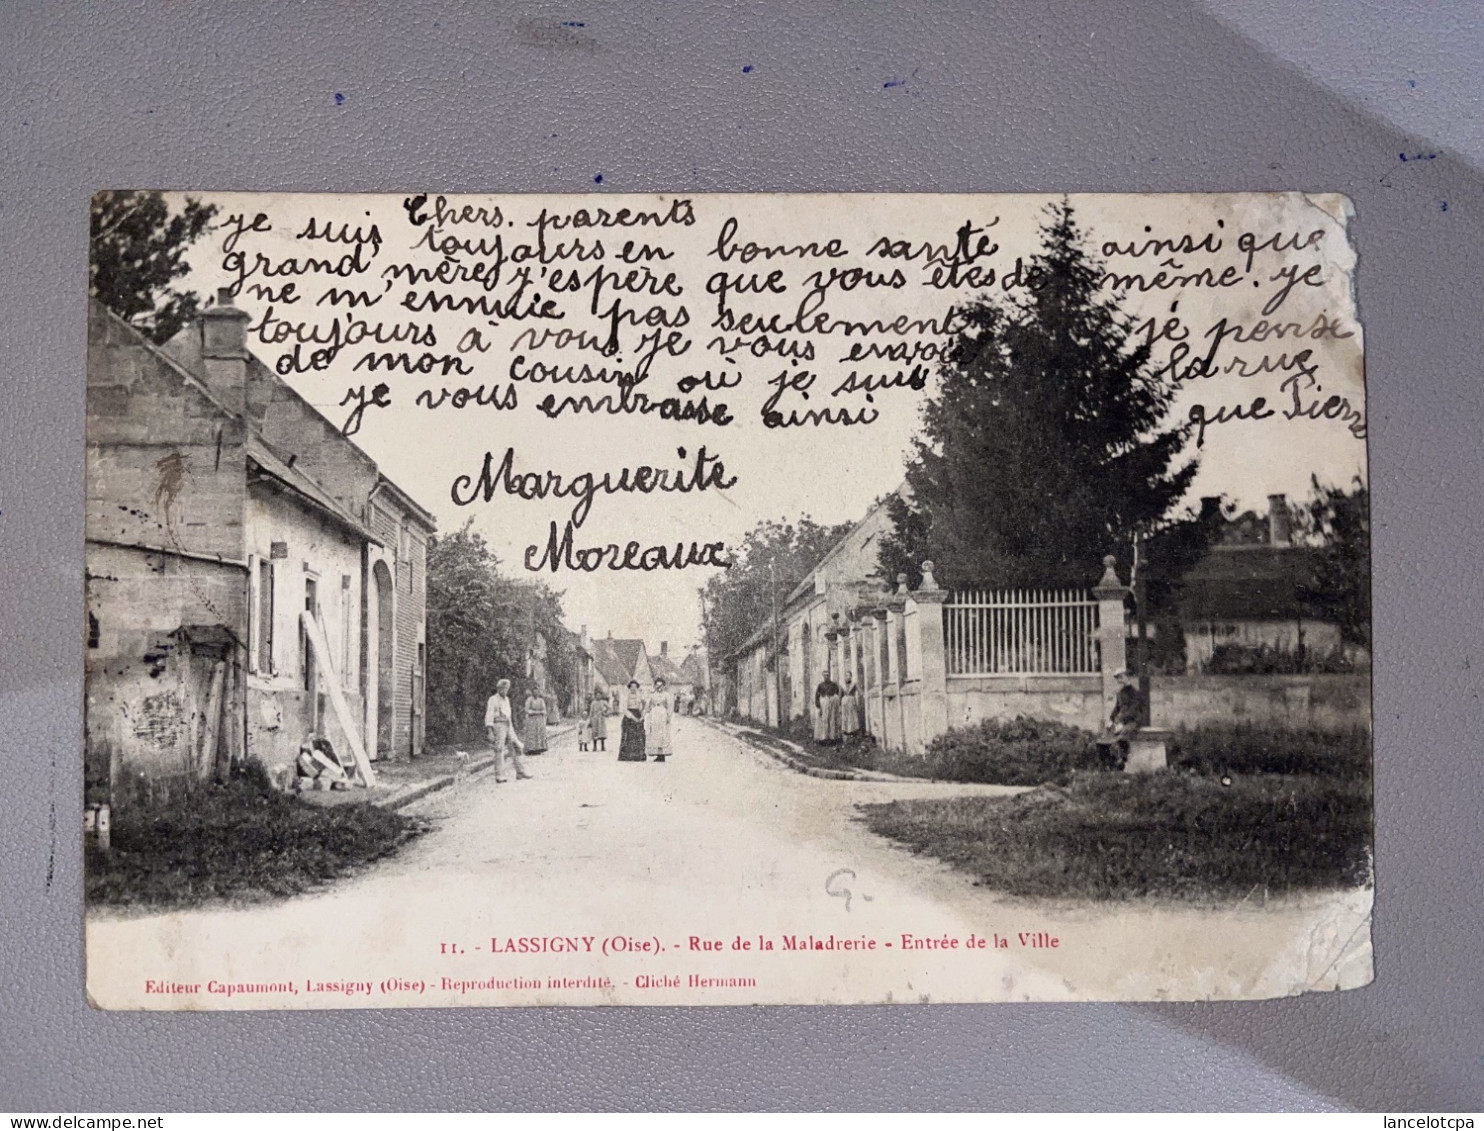 Chers. parents
je suis toujours en bonne santé ainsi que
grand'mère j'espère que vous êtes de même. je
ne m'ennuie pas seulement je pense
toujours à vous je vous envoie la rue
de mon cousin où je suis
je vous embrasse ainsi que Pierre
Marguerite
Moreaux
G.
11. - LASSIGNY (Oise). - Rue de la Maladrerie - Entrée de la Ville
Editeur Capaumont, Lassigny (Oise) - Reproduction interdite. - Cliché Hermann
lancelotcpa